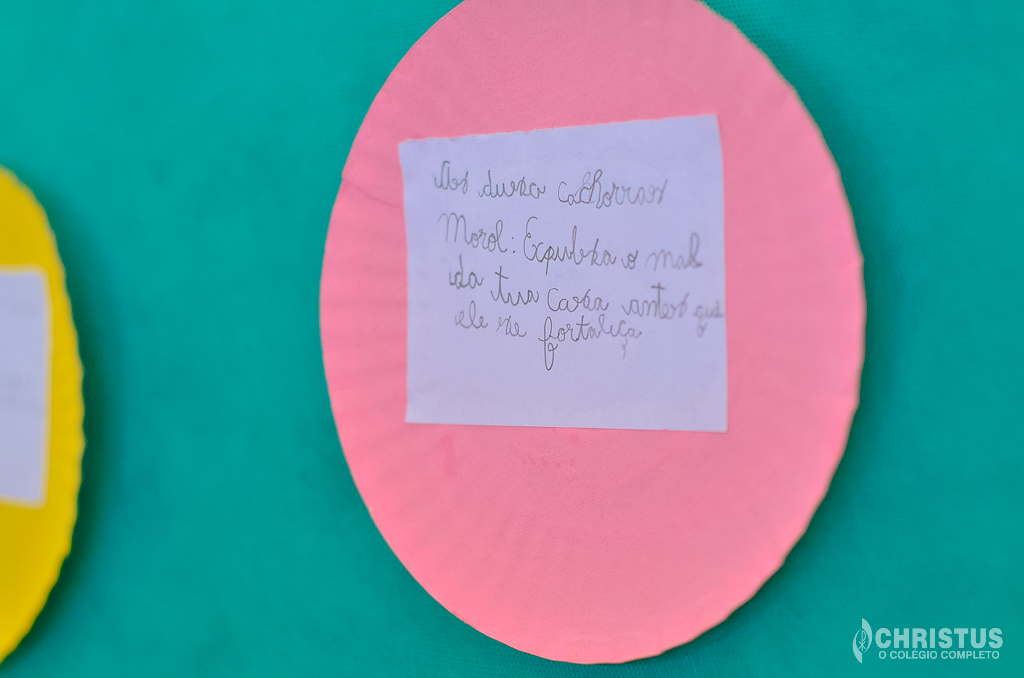 As duas cachorras
Moral: Expulsa o mal
da tua casa antes que
ele se fortaleça
CHRISTUS
O COLÉGIO COMPLETO